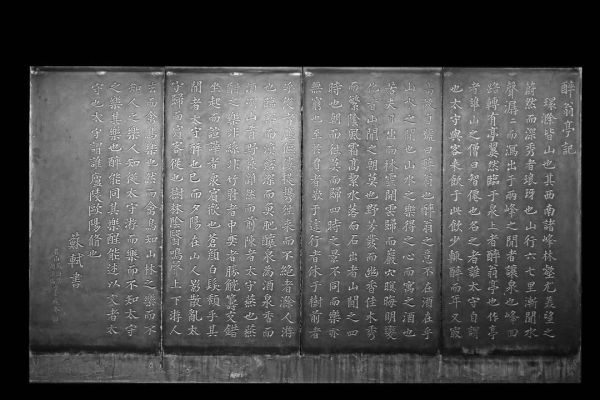 醉翁亭記
環滁皆山也其西南諸峰林壑尤美望之
蔚然而深秀者琅琊也山行六七里漸聞水
聲潺二而瀉出于兩峰之間者讓泉也峰回
路轉有亭翼然臨于泉上者醉翁亭也作亭
者誰山之僧曰智僊也名之者誰太守自謂
也太守與客來飲于此飲少輒醉而年又最
高故自號曰醉翁也醉翁之意不在酒在乎
山水之間也山水之樂得之心而寓之酒也
若夫日出而林霏開雲歸而巖穴暝晦明變
化者山間之朝莫也野芳發而幽香佳木秀
而繁陰風霜高絜水落而石出者山間之四
時也朝而往莫而歸四時之景不同而樂亦
無窮也至於負者歌于塗行者休于樹前者
呼後者應傴僂提攜往來而不絕者滁人游
也臨谿而漁谿深而魚肥釀泉為酒泉香而
酒洌山肴野蔌雜然而前陳者太守燕也燕
酣之樂非絲非竹射者中奕者勝觥籌交錯
坐起而諠譁者衆賓歡也蒼顏白髮頹乎其
間者太守醉也已而夕陽在山人影散亂太
守歸而賓客從也樹林陰翳鳴聲上下游人
去而禽鳥樂也然而禽鳥知山林之樂而不
知人之樂人知從太守游而樂而不知太守
之樂其樂也醉能同其樂醒能述以文者太
守也太守謂誰廬陵歐陽脩也
蘇軾書